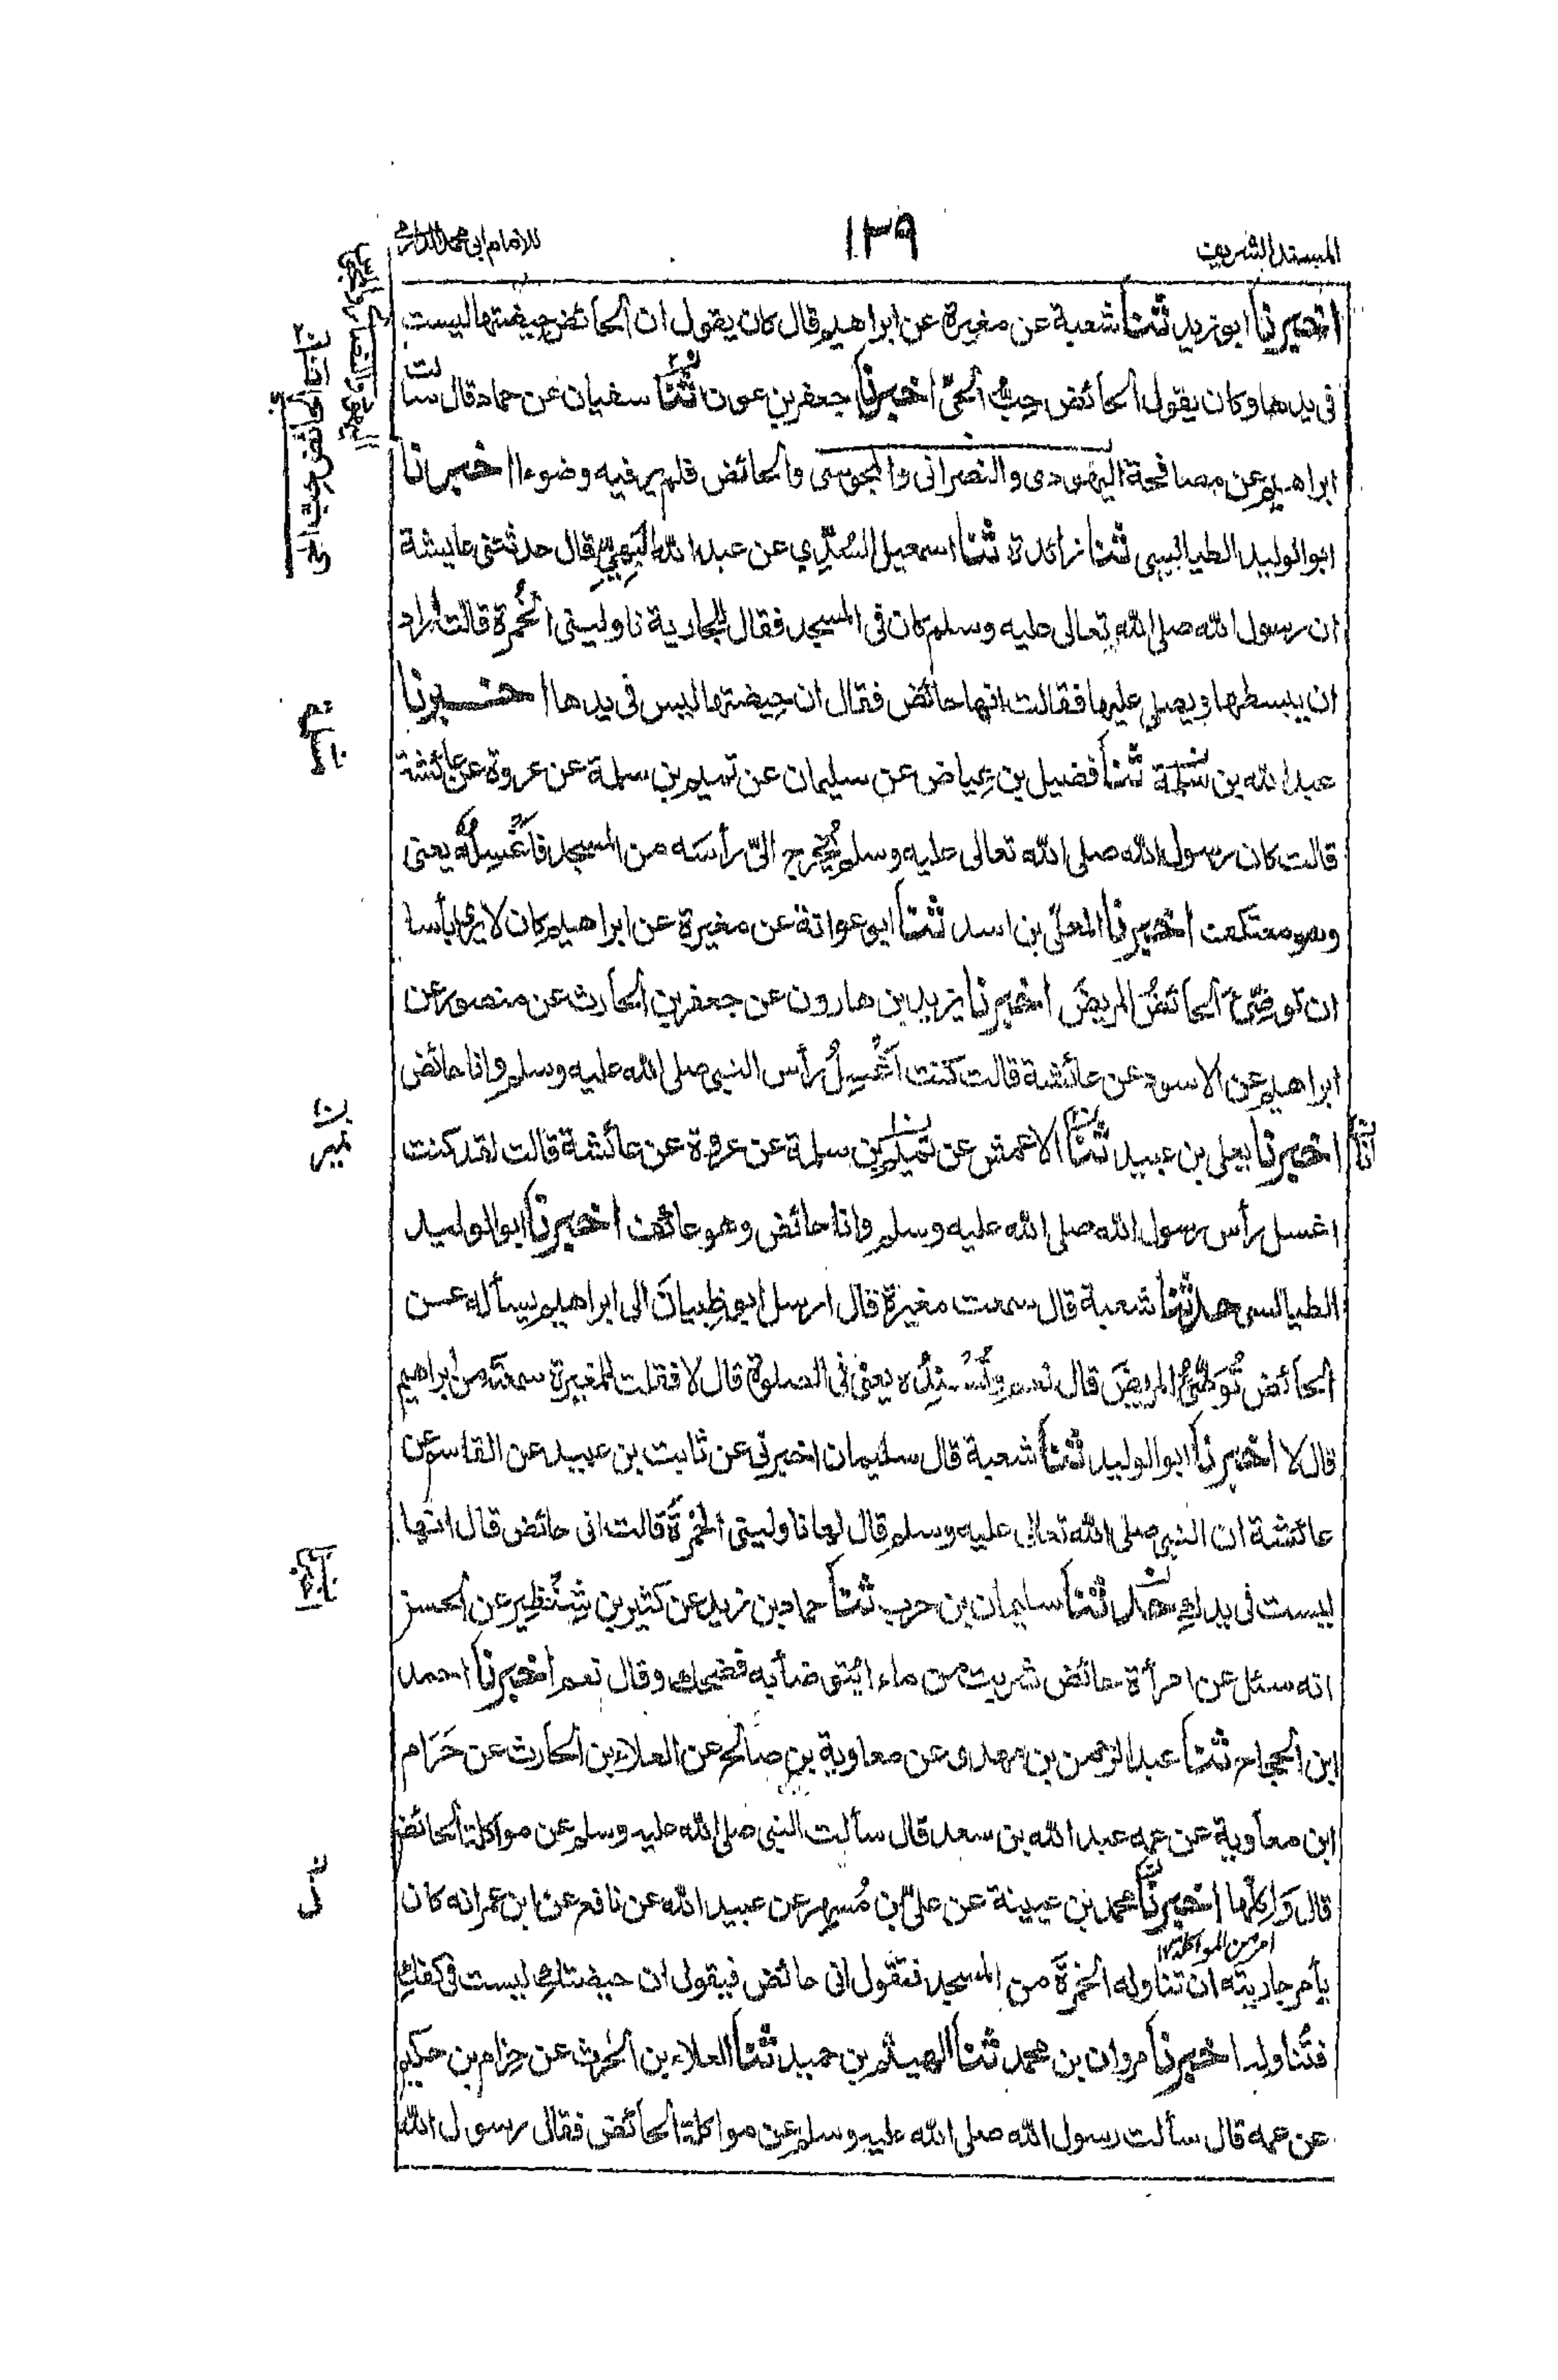 المسند الشريف
١٣٩
للامام ابى محمد الدارمى
اخبرنا ابو زيد ثنا شعبة عن مغيرة عن ابراهيم قال كان يقول ان الحائض حيضتها ليست
فى يدها وكان يقول الحائض حِبُّ الحىّ اخبرنا جعفر بن عون ثنا سفيان عن حماد قال سالت
ابراهيم عن مصافحة اليهودى والنصرانى والمجوسى والحائض فلم ير فيه وضوءا اخبرنا
ابو الوليد الطيالسى ثنا زائدة ثنا اسمعيل السُّدّي عن عبد الله البَهِيّ قال حدثتنى عايشة
ان رسول الله صلى الله تعالى عليه وسلم كان فى المسجد فقال للجارية ناولينى الخُمرة قالت اراد
ان يبسطها ويصلى عليها فقالت انها حائض فقال ان حيضتها ليس فى يدها اخبرنا
عبد الله بن مسلمة ثنا فضيل بن عياض عن سليمان عن تميم بن سلمة عن عروة عن عائشة
قالت كان رسول الله صلى الله تعالى عليه وسلم يُخرج الىّ رأسَه من المسجد فأَغسِلُه يعنى
وهو معتكف اخبرنا المعلّى بن اسد ثنا ابو عوانة عن مغيرة عن ابراهيم كان لا يرى بأسا
ان توضِّئَ الحائضُ المريضَ اخبرنا يزيد بن هارون عن جعفر بن الحارث عن منصور عن
ابراهيم عن الاسود عن عائشة قالت كنت اَغْسِلُ رأس النبى صلى الله عليه وسلم وانا حائض
اخبرنا يعلى بن عبيد ثنا الاعمش عن تميم بن سلمة عن عروة عن عائشة قالت لقد كنت
اغسل رأس رسول الله صلى الله عليه وسلم وانا حائض وهو عاكف اخبرنا ابو الوليد
الطيالسى حدثنا شعبة قال سمعت مغيرة قال ارسل ابو ظبيان الى ابراهيم يسأله عن
الحائض تُوَضِّئُ المريضَ قال نعم وتُسْنِدُه يعنى فى الصلوة قال لا فقلت للمغيرة سمعته من ابراهيم
قال لا اخبرنا ابو الوليد ثنا شعبة قال سليمان اخبرنى عن ثابت بن عبيد عن القاسم عن
عائشة ان النبى صلى الله تعالى عليه وسلم قال لها ناولينى الخُمْرةَ قالت انى حائض قال انها
ليست فى يدك حدثنا سليمان بن حرب ثنا حماد بن زيد عن كثير بن شِنْظِير عن الحسن
انه سئل عن امرأة حائض شربت من ماء ايتوضأ به فضحك وقال نعم اخبرنا احمد
ابن الحجاج ثنا عبد الرحمن بن مهدى عن معاوية بن صالح عن العلاء بن الحارث عن حَرَام
ابن معاوية عن عمه عبد الله بن سعد قال سألت النبى صلى الله عليه وسلم عن مواكلة الحائض
قال وَاكِلْها اخبرنا محمد بن عيينة عن علىّ بن مُسْهِر عن عبيد الله عن نافع عن ابن عمر انه كان
امر من المواكلة ١٢
يأمر جاريته ان تناوله الخمرةَ من المسجد فتقول انى حائض فيقول ان حيضتكِ ليست فى كفكِ
فتُناوله اخبرنا مروان بن محمد ثنا الهيثم بن حميد ثنا العلاء بن الحرث عن حِزام بن حكيم
عن عمه قال سألت رسول الله صلى الله عليه وسلم عن مواكلة الحائض فقال رسول الله
بن
نمير
انا